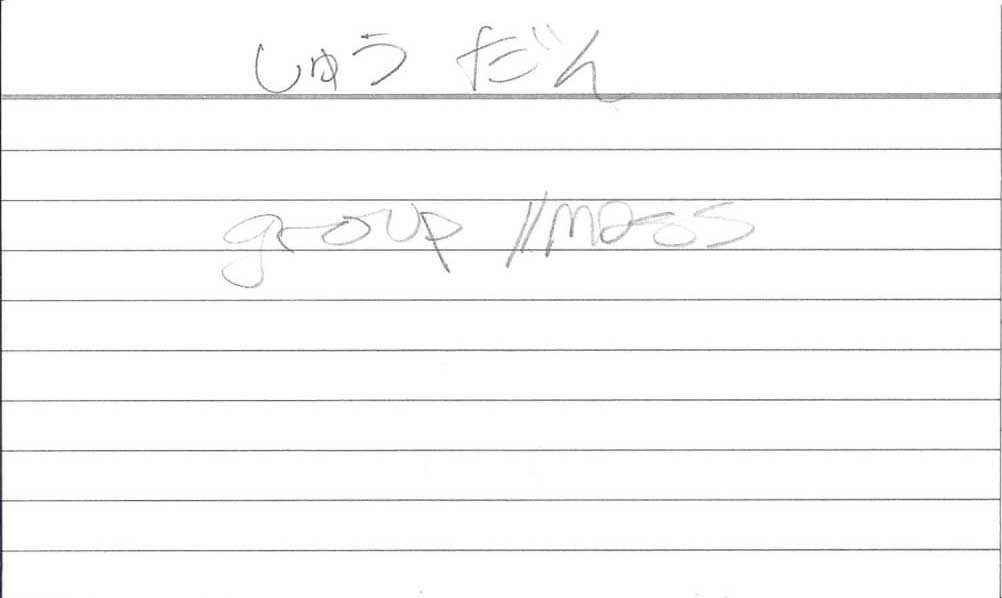 しゅう だん
group //mass